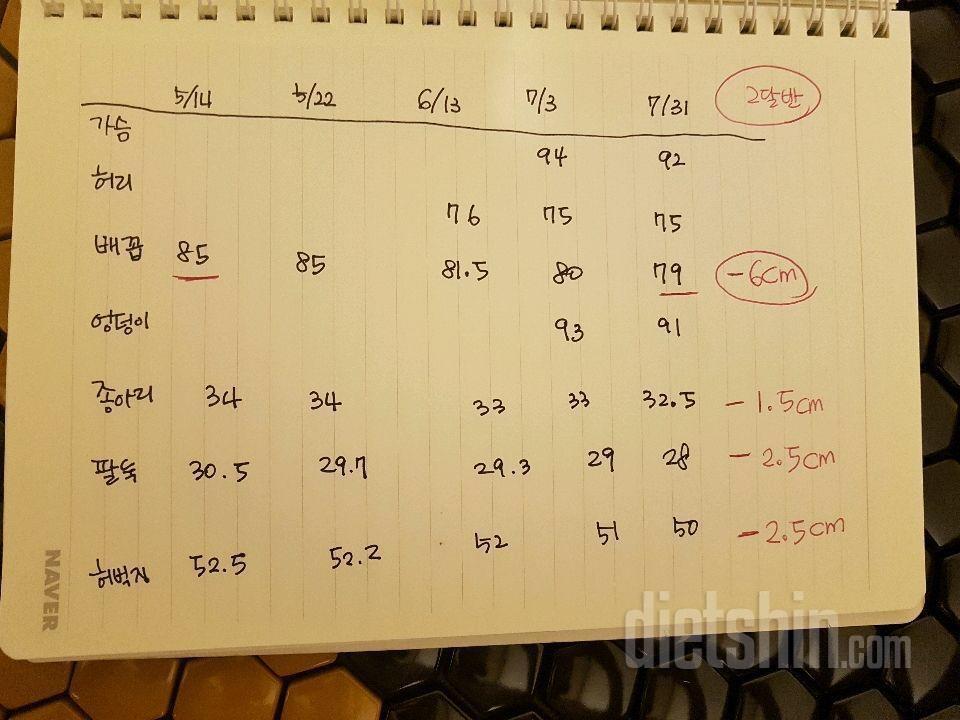 5/14 5/22 6/13 7/3 7/31 2달반
가슴 94 92
허리 76 75 75
배꼽 85 85 81.5 80 79 -6cm
엉덩이 93 91
종아리 34 34 33 33 32.5 -1.5cm
팔뚝 30.5 29.7 29.3 29 28 -2.5cm
허벅지 52.5 52.2 52 51 50 -2.5cm
NAVER
dietshin.com